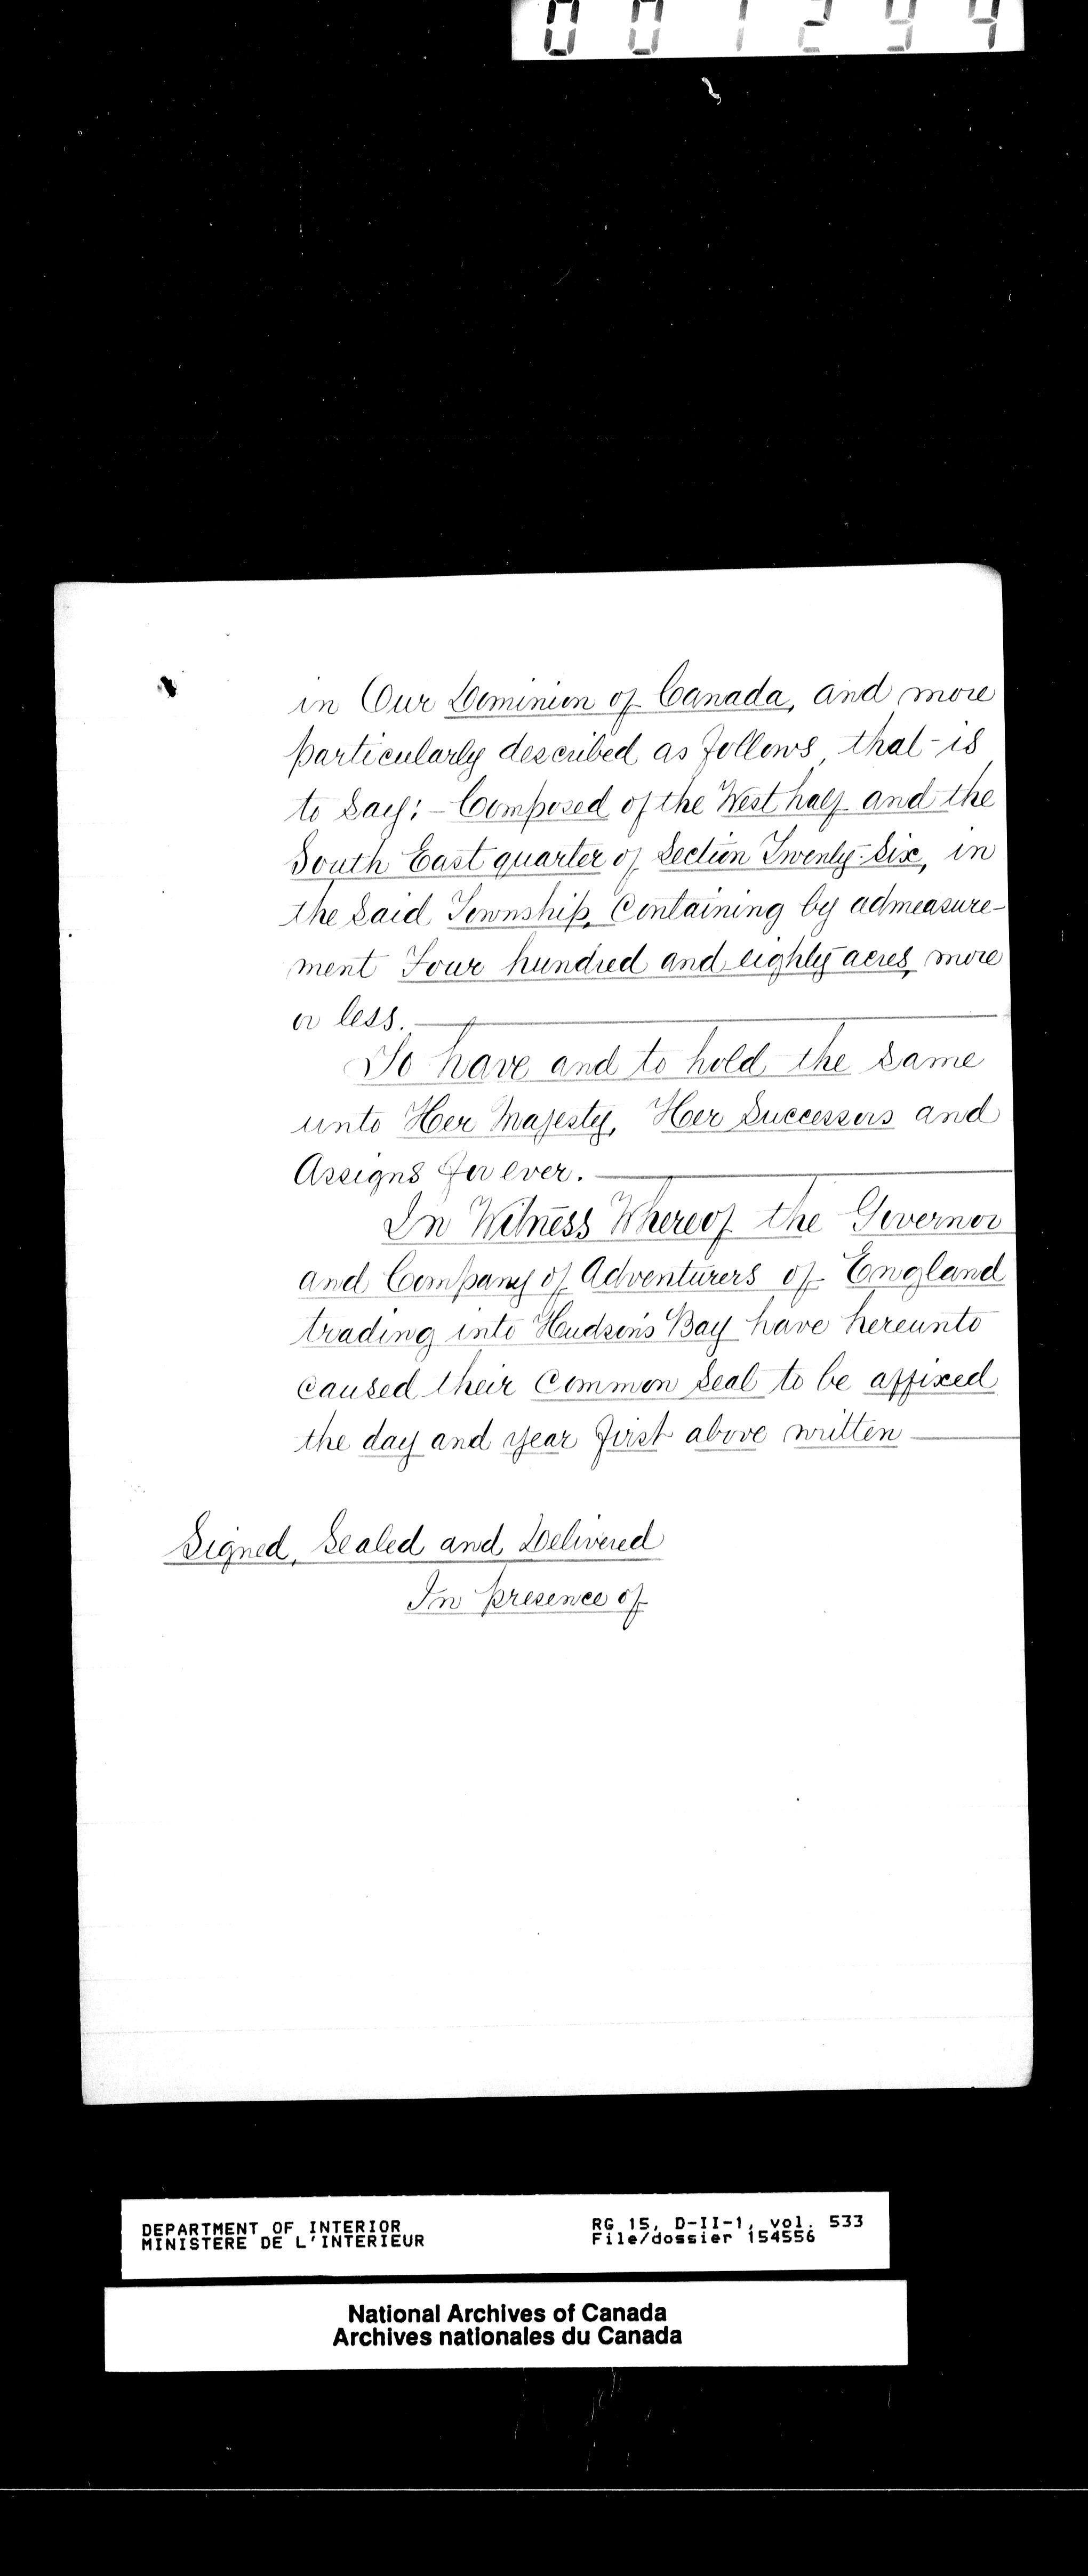 001294
in Our Dominion of Canada, and more
particularly described as follows, that is
to Say:- Composed of the West half and the
South East quarter of Section Twenty-Six, in
the Said Township, Containing by admeasure-
ment Four hundred and eighty acres, more
or less.
To have and to hold the Same
unto Her Majesty, Her Successors and
Assigns for ever.
In Witness Whereof the Governor
and Company of Adventurers of England
trading into Hudson's Bay have hereunto
caused their Common Seal to be affixed
the day and year first above written
Signed, Sealed and Delivered
In presence of
DEPARTMENT OF INTERIOR RG 15, D-II-1, vol. 533
MINISTERE DE L'INTERIEUR File/dossier 154556
National Archives of Canada
Archives nationales du Canada